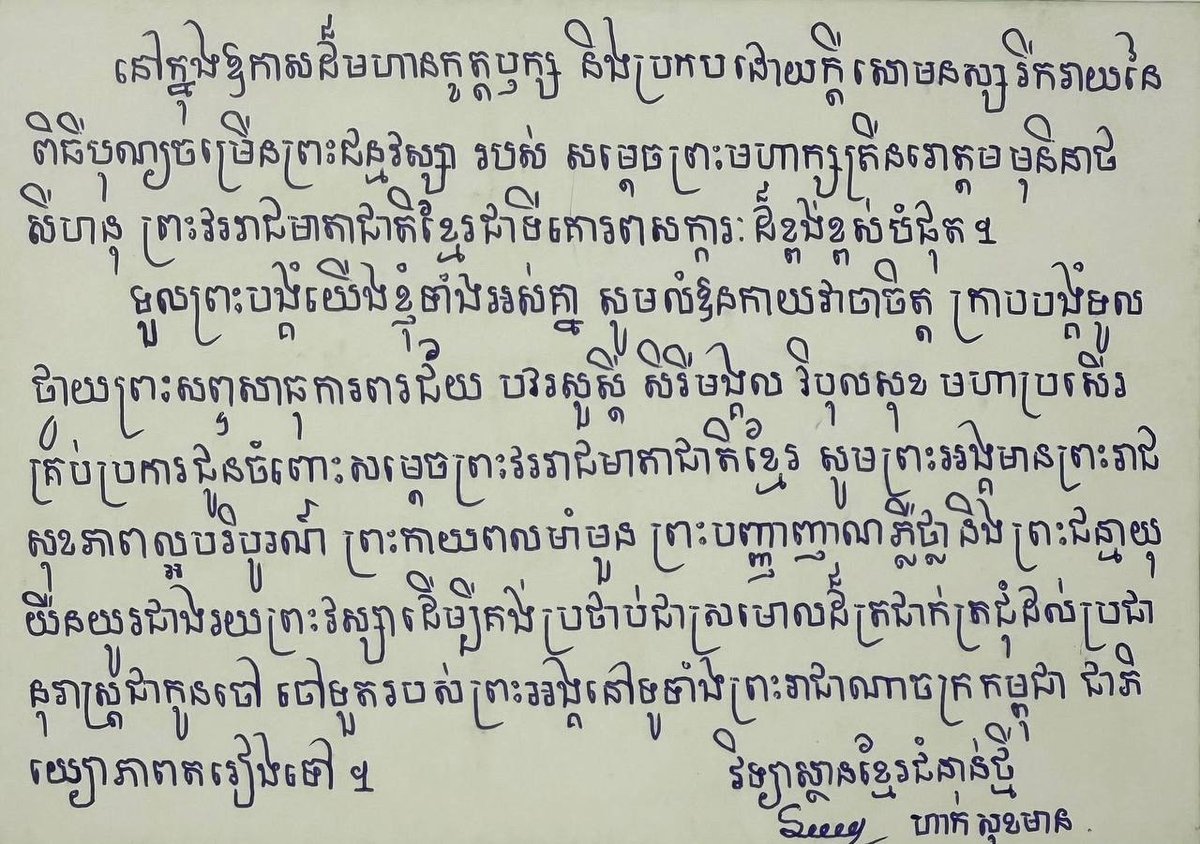 នៅក្នុងឱកាសដ៏មហានក្ខត្តឫក្ស និងប្រកបដោយក្ដីសោមនស្សរីករាយនៃ
ពិធីបុណ្យចម្រើនព្រះជន្មវស្សា របស់ សម្ដេចព្រះមហាក្សត្រីនរោត្ដមមុនិនាថ
សីហនុ ព្រះវររាជមាតាជាតិខ្មែរជាទីគោរពសក្ការៈដ៏ខ្ពង់ខ្ពស់បំផុត។
ទូលព្រះបង្គំយើងខ្ញុំទាំងអស់គ្នា សូមលំឱនកាយវាចាចិត្ត ក្រាបបង្គំទូល
ថ្វាយព្រះសព្ទសាធុការពរជ័យ បវរសួស្ដី សិរីមង្គល វិបុលសុខ មហាប្រសើរ
គ្រប់ប្រការជូនចំពោះសម្ដេចព្រះវររាជមាតាជាតិខ្មែរ សូមព្រះអង្គមានព្រះរាជ
សុខភាពល្អបរិបូរណ៍ ព្រះកាយពលមាំមួន ព្រះបញ្ញាញាណភ្លឺថ្លានិង ព្រះជន្មាយុ
យឺនយូរជាងរយព្រះវស្សាដើម្បីគង់ប្រថាប់ជាស្រមោលដ៏ត្រជាក់ត្រជុំដល់ប្រជា
នុរាស្ត្រជាកូនចៅ ចៅទួតរបស់ព្រះអង្គនៅទូទាំងព្រះរាជាណាចក្រកម្ពុជា ជាភិ
យ្យោភាពតរៀងទៅ។
វិទ្យាស្ថានខ្មែរជំនាន់ថ្មី
ហាក់ សុខមាន